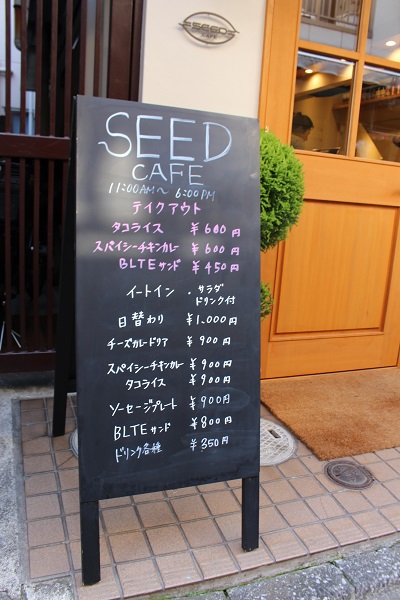 SEED
CAFE
SEED
CAFE
11:00AM~6:00PM
テイクアウト
タコライス ¥600円
スパイシーチキンカレー ¥600円
BLTEサンド ¥450円
イートイン ・サラダ
ドリンク付
日替わり ¥1.000円
チーズカレードリア ¥900円
スパイシーチキンカレー ¥900円
タコライス ¥900円
ソーセージプレート ¥900円
BLTEサンド ¥800円
ドリンク各種 ¥350円